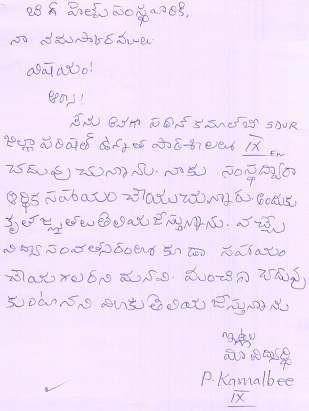 బి గ్ హెల్ప్ సంస్థ వారికి,
నా నమస్కారములు.
విషయం!
ఆర్యా!
నేను అనగా పఠాన్ కమాల్‌బీ SDVR
జిల్లా పరిషత్ ఉన్నత పాఠశాలలో IX EM
చదువు చున్నాను. నాకు సంస్థ ద్వారా
ఆర్థిక సహాయం చేయుచున్నారు. అందుకు
కృతజ్ఞతలు తెలియజేస్తున్నాను. వచ్చే
విద్యా సంవత్సరంలో కూడా సహాయం
చేయగలరని మనవి. మంచిగా చదువు
కుంటానని మీకు తెలియ జేస్తున్నాను
ఇట్లు
మీ విద్యార్థి
P. Kamalbee
IX